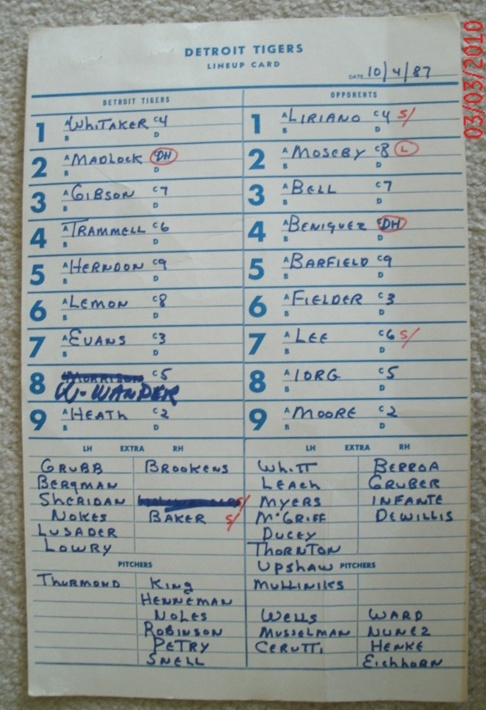 DETROIT TIGERS
LINEUP CARD
DATE 10/4/87
DETROIT TIGERS OPPONENTS
1 A WHITAKER C 4 B D 1 A LIRIANO C 4 S/ B D
2 A MADLOCK DH B D 2 A MOSEBY C 8 L B D
3 A GIBSON C 7 B D 3 A BELL C 7 B D
4 A TRAMMELL C 6 B D 4 A BENIQUEZ DH B D
5 A HERNDON C 9 B D 5 A BARFIELD C 9 B D
6 A LEMON C 8 B D 6 A FIELDER C 3 B D
7 A EVANS C 3 B D 7 A LEE C 6 S/ B D
8 MORRISON C 5 W-WANDER 8 A IORG C 5 B D
9 A HEATH C 2 B D 9 A MOORE C 2 B D
LH EXTRA RH LH EXTRA RH
GRUBB BROOKENS WHITT BERROA
BERGMAN LEACH GRUBER
SHERIDAN S/ MYERS INFANTE
NOKES BAKER S/ McGRIFF DEWILLIS
LUSADER DUCEY
LOWRY THORNTON
PITCHERS UPSHAW PITCHERS
THURMOND KING MULLINIKS
HENNEMAN
NOLES WELLS WARD
ROBINSON MUSSELMAN NUNEZ
PETRY CERUTTI HENKE
SNELL EICHHORN
03/03/2010